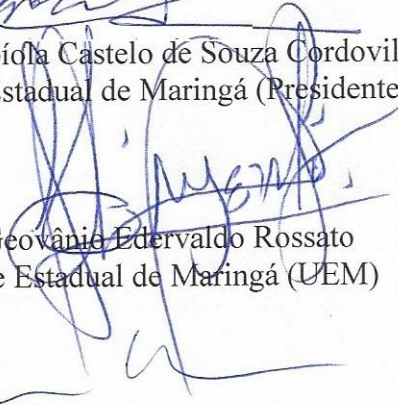 íola Castelo de Souza Cordovil
stadual de Maringá (Presidente
Geovânio Edervaldo Rossato
e Estadual de Maringá (UEM)